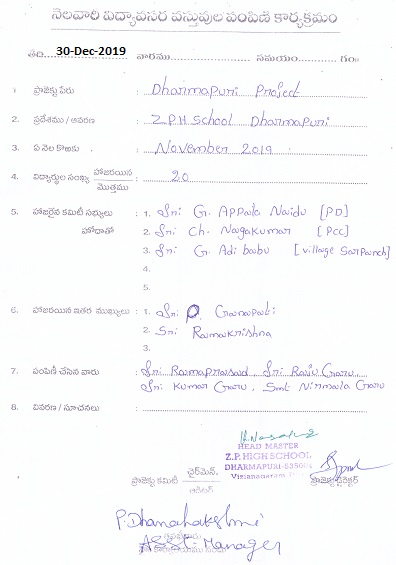 నెలవారీ విద్యావసర వస్తువుల పంపిణీ కార్యక్రమం
తేది 30-Dec-2019 వారము సమయం గం॥
1 ప్రాజెక్టు పేరు : Dharmapuri Project
2. ప్రదేశము / ఆవరణ : Z.P.H.School Dharmapuri
3. ఏ నెల కొఱకు : November 2019
4. విద్యార్థుల సంఖ్య హాజరయిన / మొత్తము : 20
5. హాజరైన కమిటీ సభ్యులు : 1. Sri G. Appala Naidu [PD]
హోదాతో 2. Sri Ch. Nagakumar [PCC]
3. Sri G. Adi babu [village Sarpanch]
4.
5.
6. హాజరయిన ఇతర ముఖ్యులు : 1. Sri P. Ganapati
2. Sri Ramakrishna
3.
7. పంపిణీ చేసిన వారు : Sri Ramaprasad Sri Raju Garu
Sri Kumar Garu, Smt Nirmala Garu
8. వివరణ / సూచనలు :
HEAD MASTER
Z.P. HIGH SCHOOL
DHARMAPURI-535004
Vizianagaram
ప్రాజెక్టు కమిటీ ఛైర్‌మెన్. ప్రాజెక్టు డైరెక్టర్
P. Dhanalakshmi
Asst. Manager